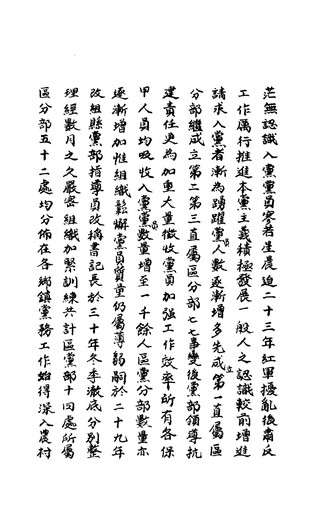 茫無認識入黨黨員寥若星晨迨二十三年紅軍擾亂後肅反
工作厲行推進本黨主義積極發展一般人之認識較前增進
請求入黨者漸為踴躍黨員人數逐漸增多先成立第一直屬區
分部繼成立第二第三直屬區分部七七事變後黨部領導抗
建責任更為加重大量徵收黨員加強工作效率所有各保
甲人員均吸收入黨黨員數量增至一千餘人區黨分部數量亦
逐漸增加惟組織鬆懈黨員質量仍屬薄弱嗣於二十九年
改組縣黨部指導員改稱書記長於三十年冬季澈底分別整
理經數月之久嚴密組織加緊訓練共計區黨部十四處所屬
區分部五十二處均分佈在各鄉鎮黨務工作始得深入農村